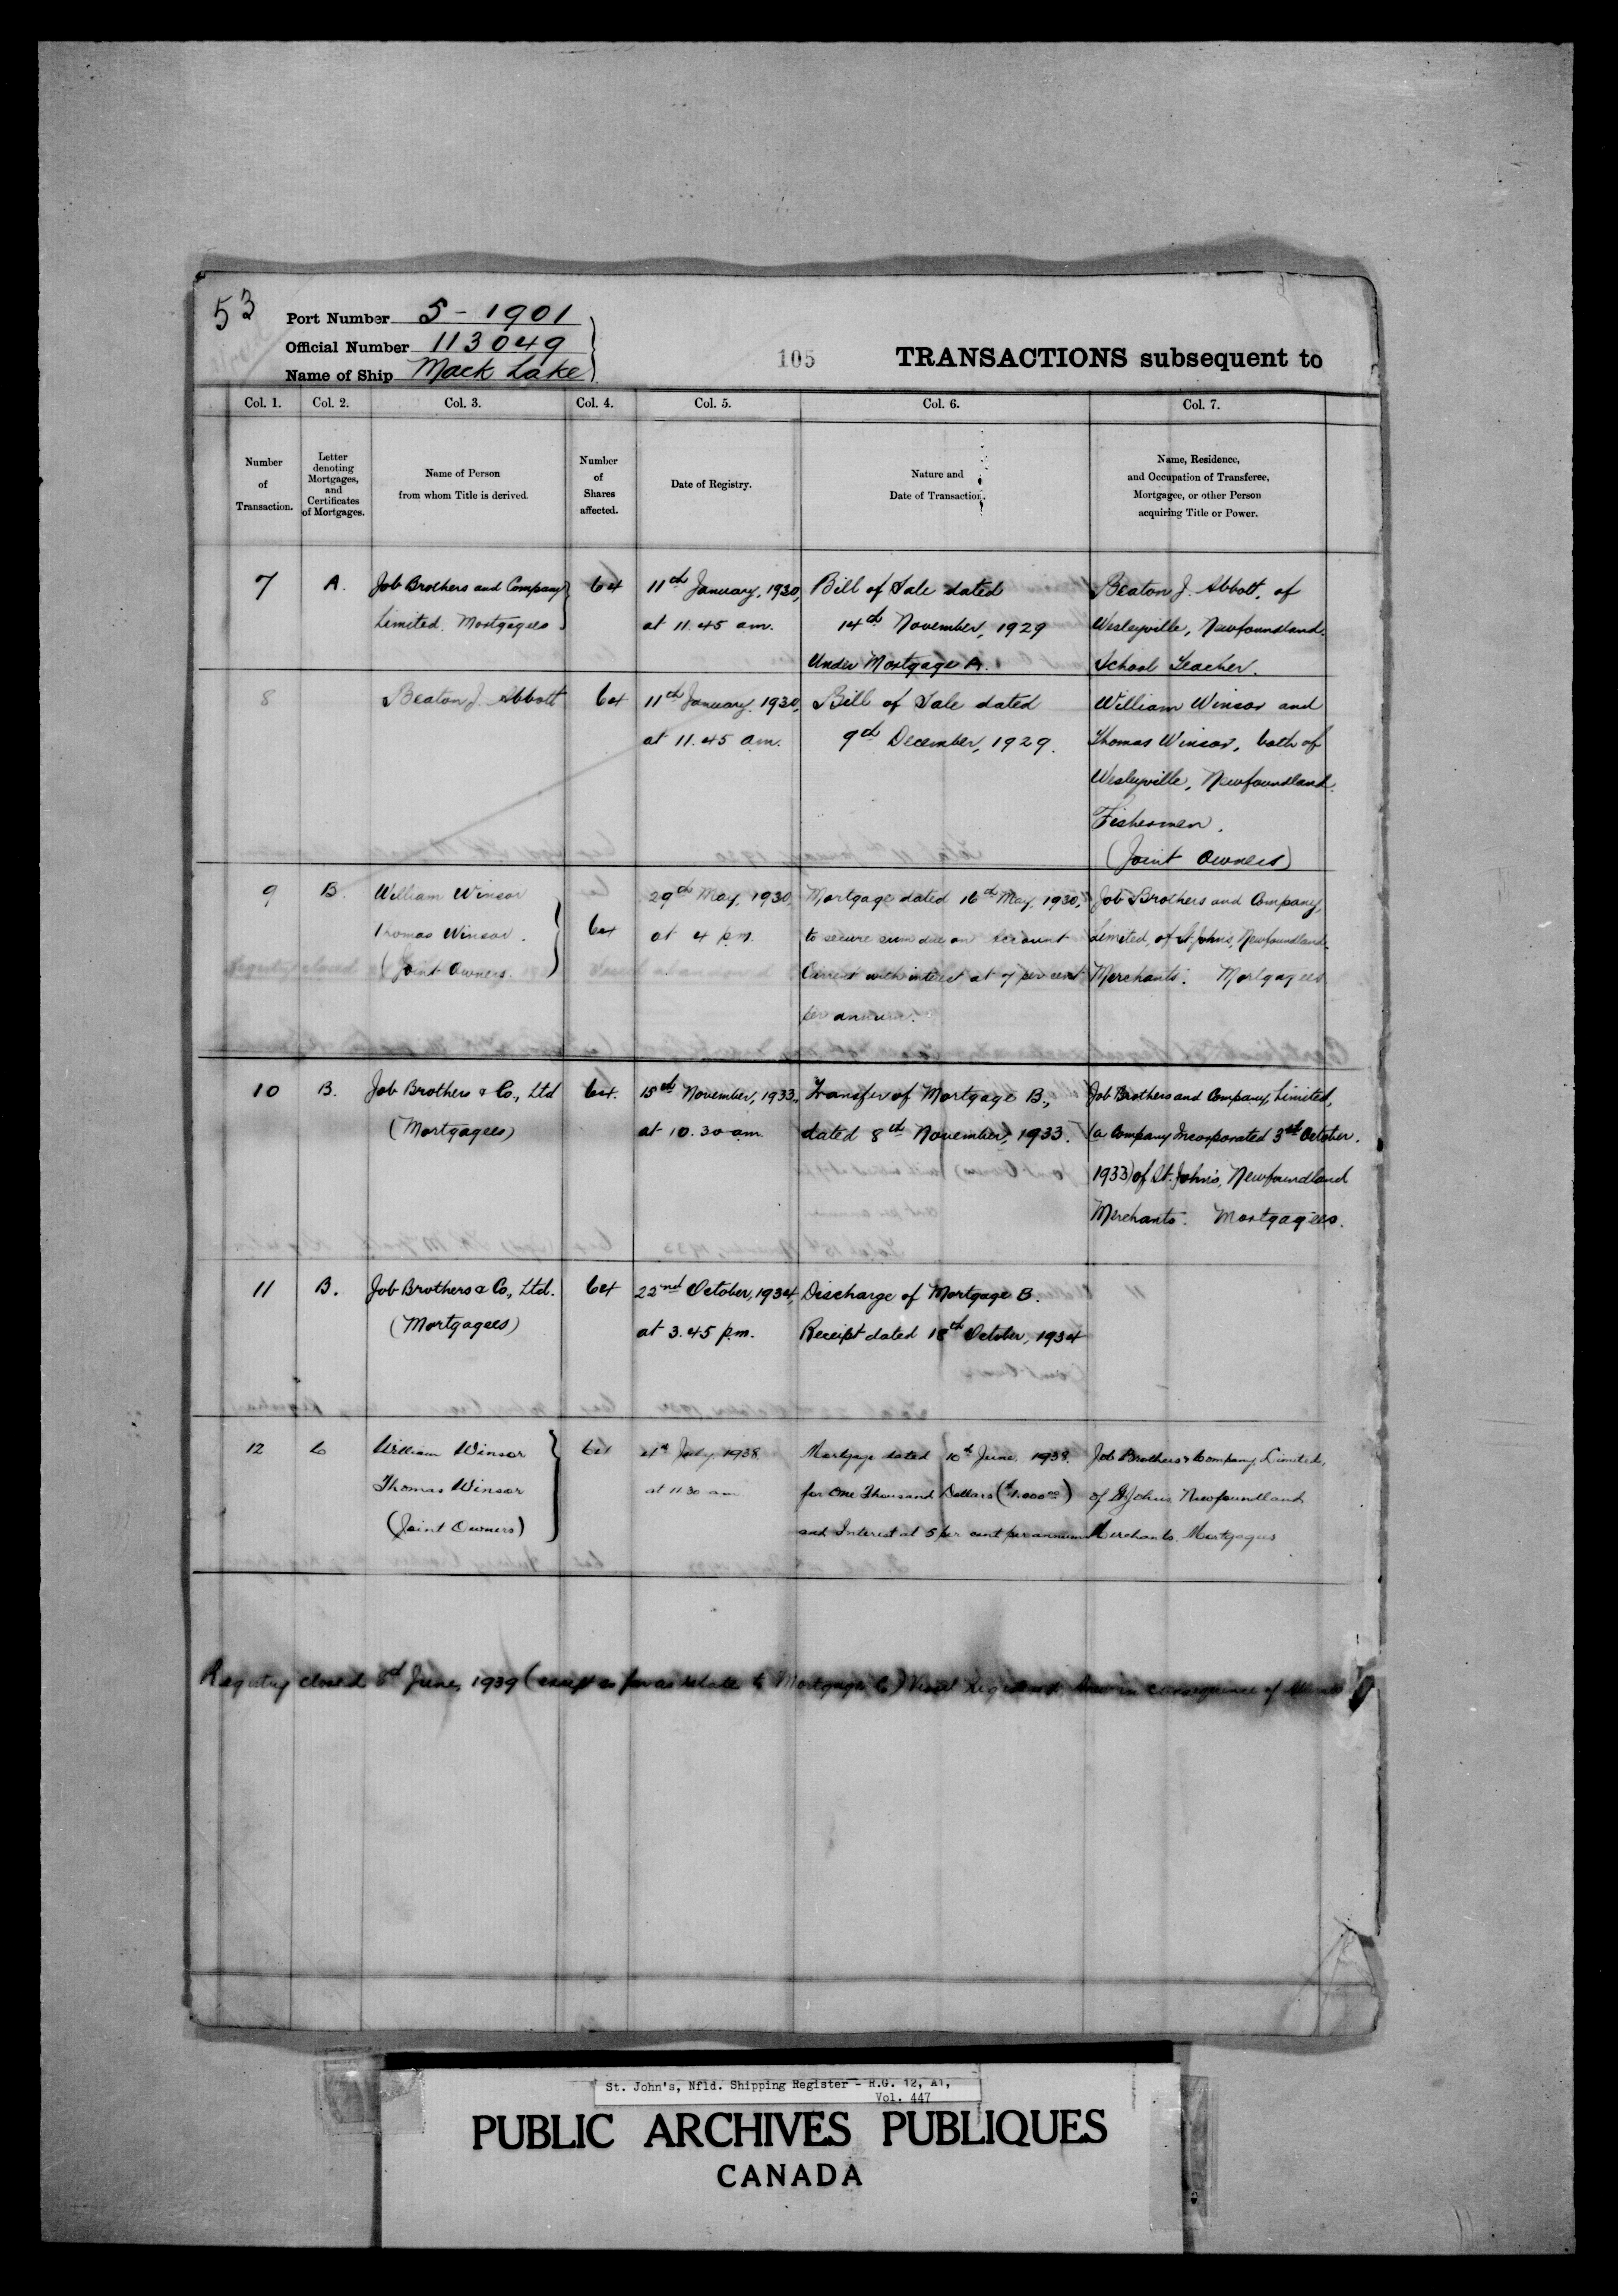 53
Port Number 5-1901
Official Number 113049
Name of Ship Mack Lake
105
TRANSACTIONS subsequent to
Col. 1. Col. 2. Col. 3. Col. 4. Col. 5. Col. 6. Col. 7.
Number of Transaction.
Letter denoting Mortgages, and Certificates of Mortgages.
Name of Person from whom Title is derived.
Number of Shares affected.
Date of Registry.
Nature and Date of Transaction.
Name, Residence, and Occupation of Transferee, Mortgagee, or other Person acquiring Title or Power.
7 A. Job Brothers and Company 64 11th January, 1930, Bill of Sale dated Beaton J. Abbott, of
Limited. Mortgagees at 11.45 am. 14th November, 1929 Wesleyville, Newfoundland.
Under Mortgage A. School Teacher.
8 Beaton J. Abbott 64 11th January, 1930, Bill of Sale dated William Winsor and
at 11.45 am. 9th December, 1929. Thomas Winsor, both of
Wesleyville, Newfoundland.
Fishermen.
(Joint Owners)
9 B. William Winsor 29th May, 1930, Mortgage dated 16th May, 1930, Job Brothers and Company,
Thomas Winsor. 64 at 4 p.m. to secure sum due on Account Limited, of St. John's, Newfoundland.
(Joint Owners. Current with interest at 7 per cent Merchants. Mortgagees
per annum.
10 B. Job Brothers & Co., Ltd 64. 15th November, 1933, Transfer of Mortgage B., Job Brothers and Company, Limited,
(Mortgagees) at 10.30 am. dated 8th November, 1933. (a Company Incorporated 3rd October,
1933) of St. John's, Newfoundland
Merchants. Mortgagees.
11 B. Job Brothers & Co., Ltd. 64 22nd October, 1934, Discharge of Mortgage B.
(Mortgagees) at 3.45 p.m. Receipt dated 18th October, 1934
12 C William Winsor 64 4th July, 1938. Mortgage dated 10th June, 1938. Job Brothers & Company Limited,
Thomas Winsor at 11.30 am for One Thousand Dollars ($1,000.00) of St. John's Newfoundland
(Joint Owners) and Interest at 5 per cent per annum Merchants. Mortgagees
Registry closed 8th June, 1939 (except so far as relate to Mortgage C) Vessel Registered Anew in consequence of
St. John's, Nfld. Shipping Register - R.G. 12, A1,
Vol. 447
PUBLIC ARCHIVES PUBLIQUES
CANADA